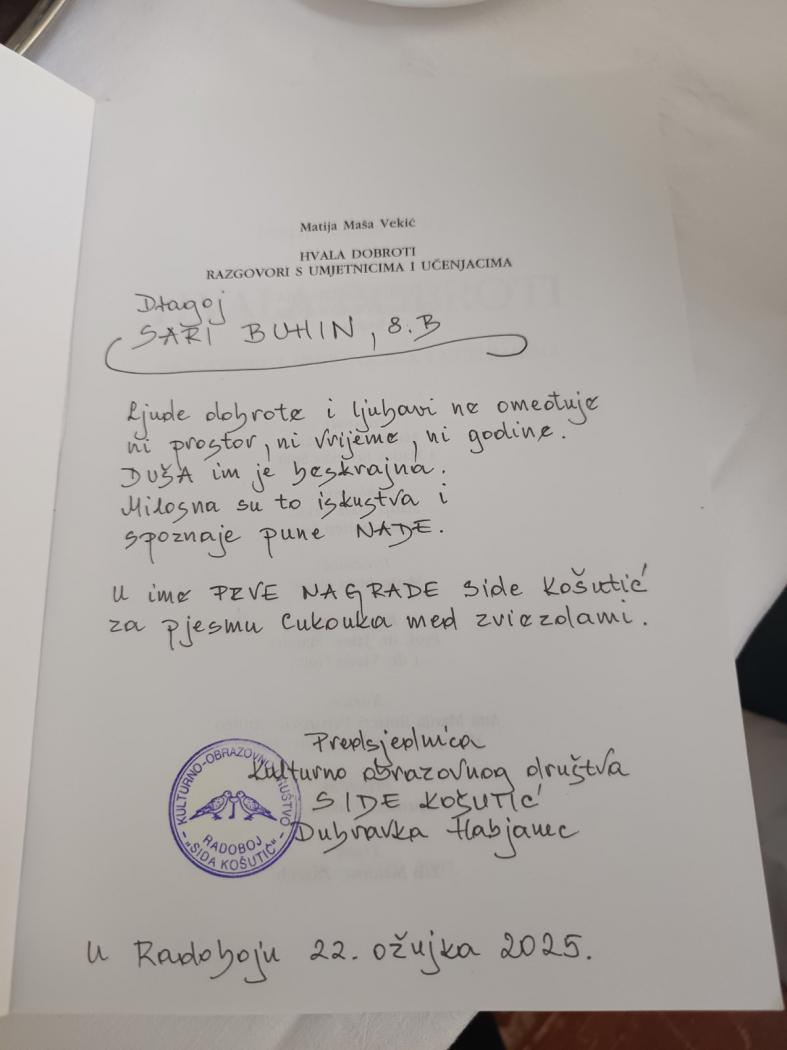 Matija Maša Vekić
HVALA DOBROTI
RAZGOVORI S UMJETNICIMA I UČENJACIMA
Dragoj
SARI BUHIN, 8.B
Ljude dobrote i ljubavi ne omeđuje
ni prostor, ni vrijeme, ni godine.
DUŠA im je beskrajna.
Milosna su to iskustva i
spoznaje pune NADE.
U ime PRVE NAGRADE Side Košutić
za pjesmu Cukouka med zviezdami.
Predsjednica
Kulturno obrazovnog društva
SIDE KOŠUTIĆ
Dubravka Habjanec
KULTURNO-OBRAZOVNO DRUŠTVO
RADOBOJ
"SIDA KOŠUTIĆ"
U Radoboju 22. ožujka 2025.